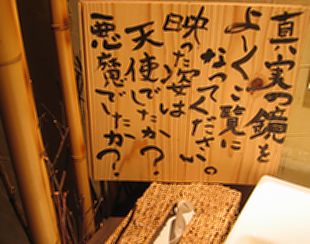 真実の鏡を
よーくご覧に
なってください。
映った姿は
天使でしたか？
悪魔でしたか？